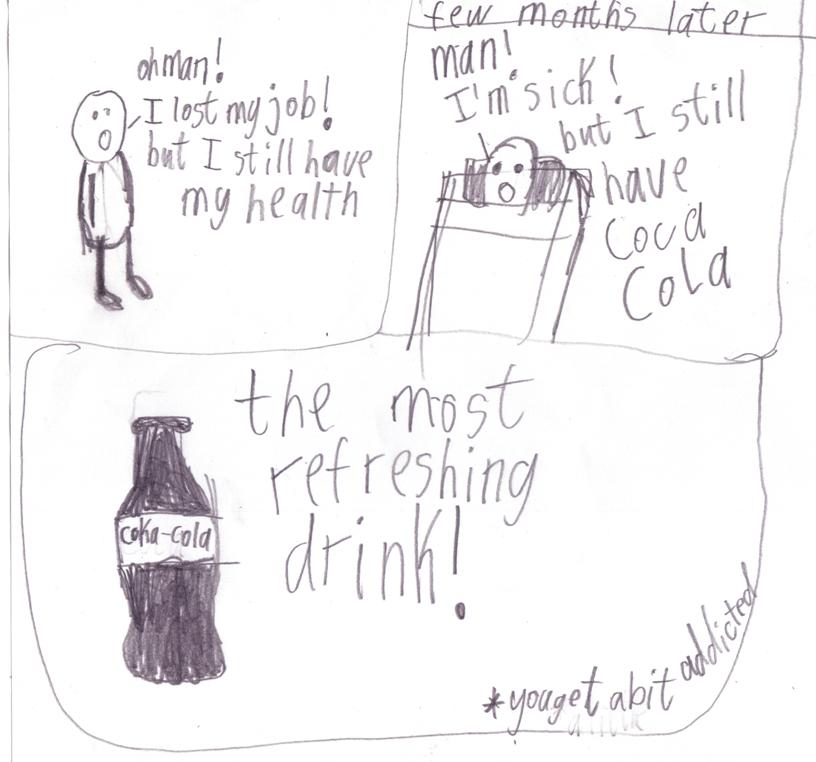 oh man!
I lost my job!
but I still have
my health
few months later
man!
I'm sick!
but I still
have
Coca
Cola
the most
refreshing
drink!
coka-cola
*youget abit addicted